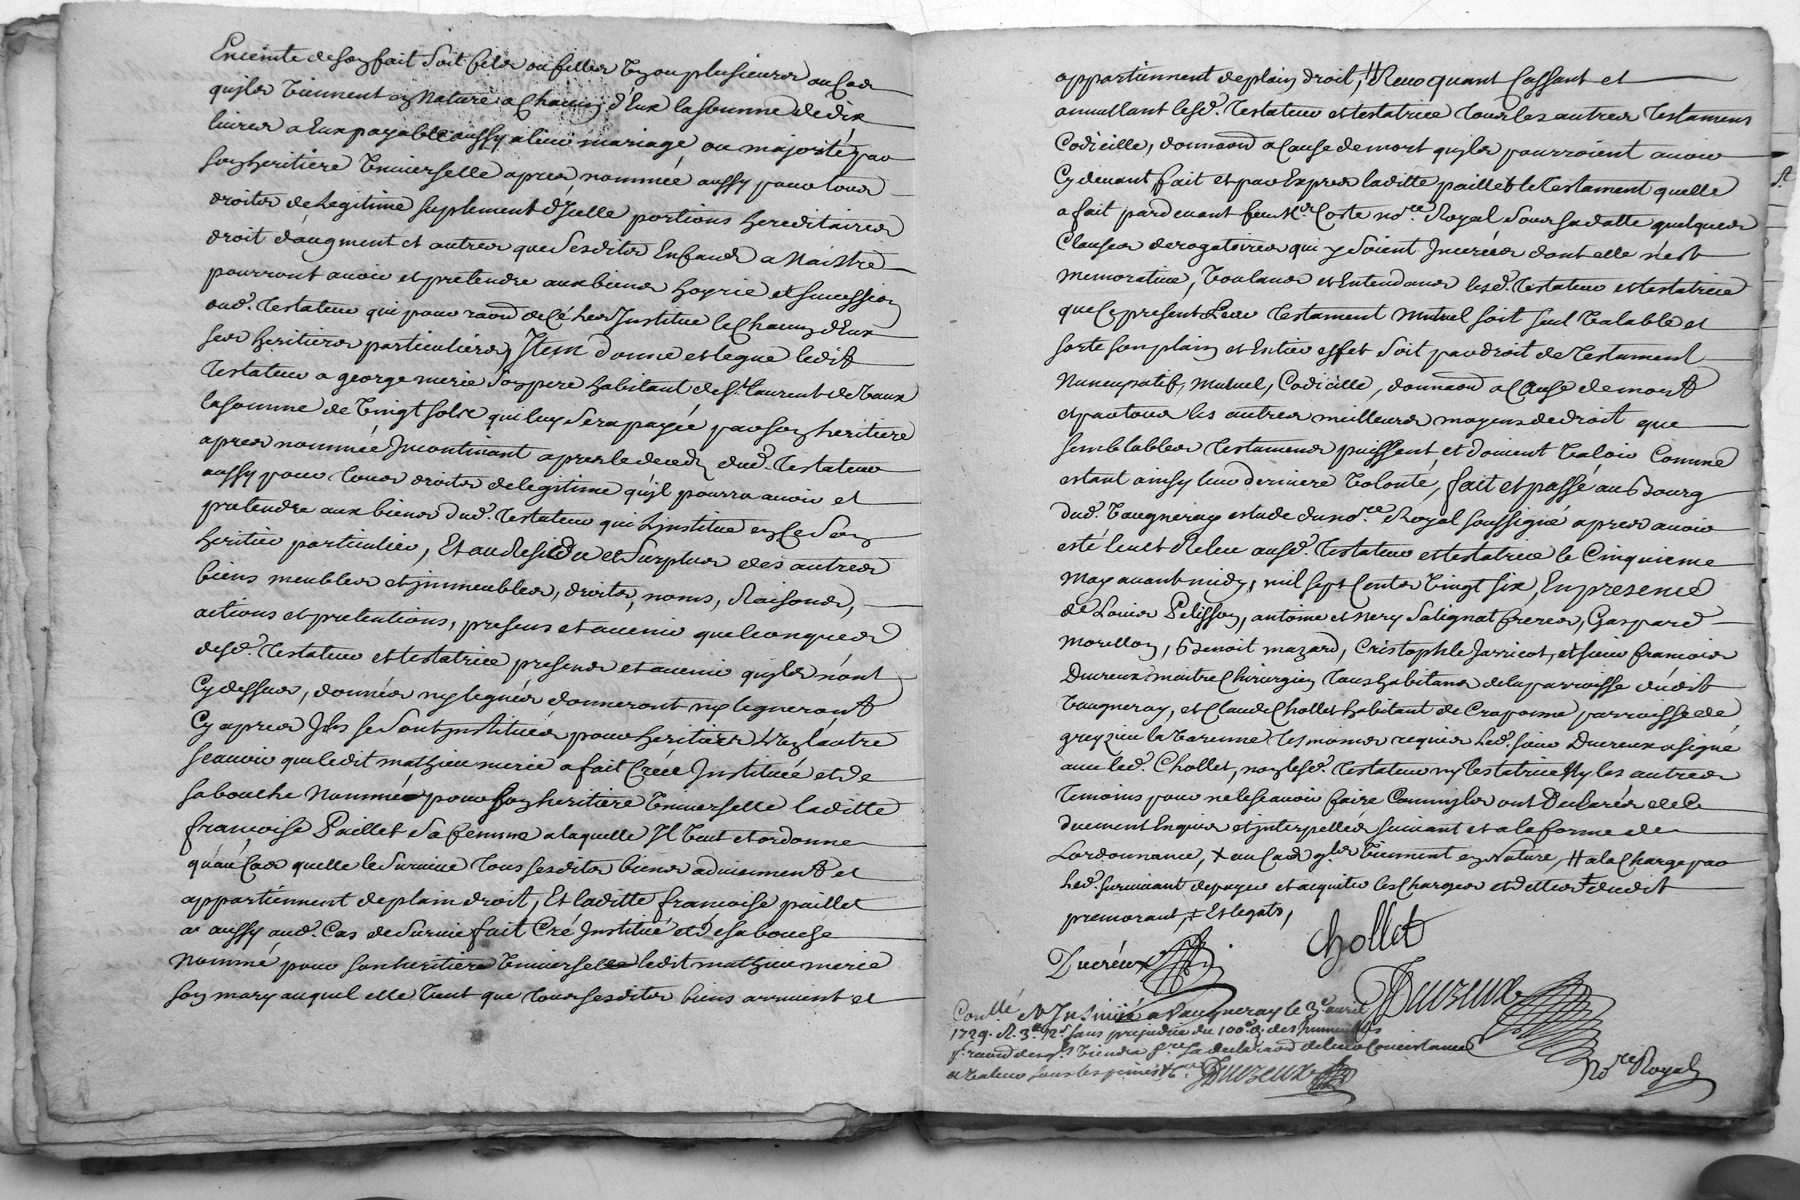 Enceinte de son fait soit fils ou filles un ou plusieurs au Cas
quils viennent en Nature a Chacun d'Eux la somme de dix
livres a Eux payable aussy a leur mariage ou majorité par
son heritiere universelle apres nommée aussy pour tous
droits de legitime suplement d'Icelle portions hereditaires
droit d'augment et autres que sesdits Enfans a Naistre
pourront avoir et pretendre aux biens hoyrie et succession
dud. Testateur qui pour raond de Ce les Institue le Chacun d'Eux
ses heritiers particuliers, Item donne et legue ledit
Testateur a george merie son pere habitant de St. Laurent de Vaux
la somme de vingt sols qui luy sera payée par son heritiere
apres nommée Incontinant apres le deceds dud. Testateur
aussy pour tous droits de legitime qu'il pourra avoir et
pretendre aux biens dud. Testateur qui l'institue en Ce son
heritier particulier, Et au Residu et Surplus des autres
biens meubles et immeubles, droits, noms, Raisons,
actions et pretentions, presens et avenir quelconques
desd. Testateur et testatrice presens et avenir quils n'ont
Cy dessus, données ny leguées donneront ny legueront
Cy apres Ils se sont instituées pour heritiers l'un l'autre
scavoir que ledit mathieu merie a fait Créé Instituée et de
sa bouche Nommée pour son heritiere universelle laditte
francoise Paillet sa femme a laquelle Il veut et ordonne
qu'au Cas quelle le survive tous sesdits biens adviennent et
appartiennent de plain droit, Et laditte francoise paillet
a aussy aud. Cas de survie fait Cré Institué et de sa bouche
Nommé pour son heritiere universelle ledit mathieu merie
son mary auquel elle veut que tous sesdits biens arrivent et
appartiennent de plain droit, # Revoquant Cassant et
annullant lesd. Testateur et testatrice tous les autres testamens
Codicille, donnaond a Cause de mort quils pourroient avoir
Cy devant fait et par Expres laditte paillet le Testament quelle
a fait pardevant feu Me. Coste nore. Royal sous sa datte quelques
Clauses derogatoires qui y soient Inserées dont elle n'est
memorative, voulans et Entendans lesd. Testateur et testatrice
que Ce present Leur Testament mutuel soit seul valable et
sorte son plain et Entier effet soit par droit de Testament
Nuncupatif, mutuel, Codicille, donnaond a Cause de mort
et par tous les autres meilleurs moyens de droit que
semblables Testamens puissent et doivent valoir Comme
estant ainsy leur derniere volonté, fait et passé au Bourg
dud. Vaugneray estude du nore. Royal soussigné apres avoir
esté leu et Releu ausd. Testateur et testatrice le Cinquieme
may avant midy, mil sept Cents vingt six, En presence
de Louis Pelisson, antoine et nery Salignat freres, Gaspard
morellon, Benoit mazard, Cristophle Jarricot, et sieur francois
Ducreux maitre Chirurgien tous habitans de la parroisse dudit
Vaugneray, et Claude Chollet habitant de Craponne parroisse de
greyzieu la varenne tesmoins requis led. sieur Ducreux a signé
avec led. Chollet, non lesd. Testateur ny testatrice Ny les autres
temoins pour ne le scavoir faire Comm'ils ont Declarés de Ce
duement Enquis et interpellés suivant et a la forme de
Lordonnance, + au Cas qls viennent en Nature, # a la Charge par
led. survivant de payer et acquiter les Charges et dettes + dudit
premorant, + Et legats,
Ducreux
Chollet
Duzeux
Nore Royal
Conllé & Insinué a Vaugneray le 3e avril
1729. R. 3ll 12s sans prejudice du 100e d. des immeubles
pr. raond desqls viendra fre sa declaraond de leur Consistance
et valeur sous les peines &c. Duzeux